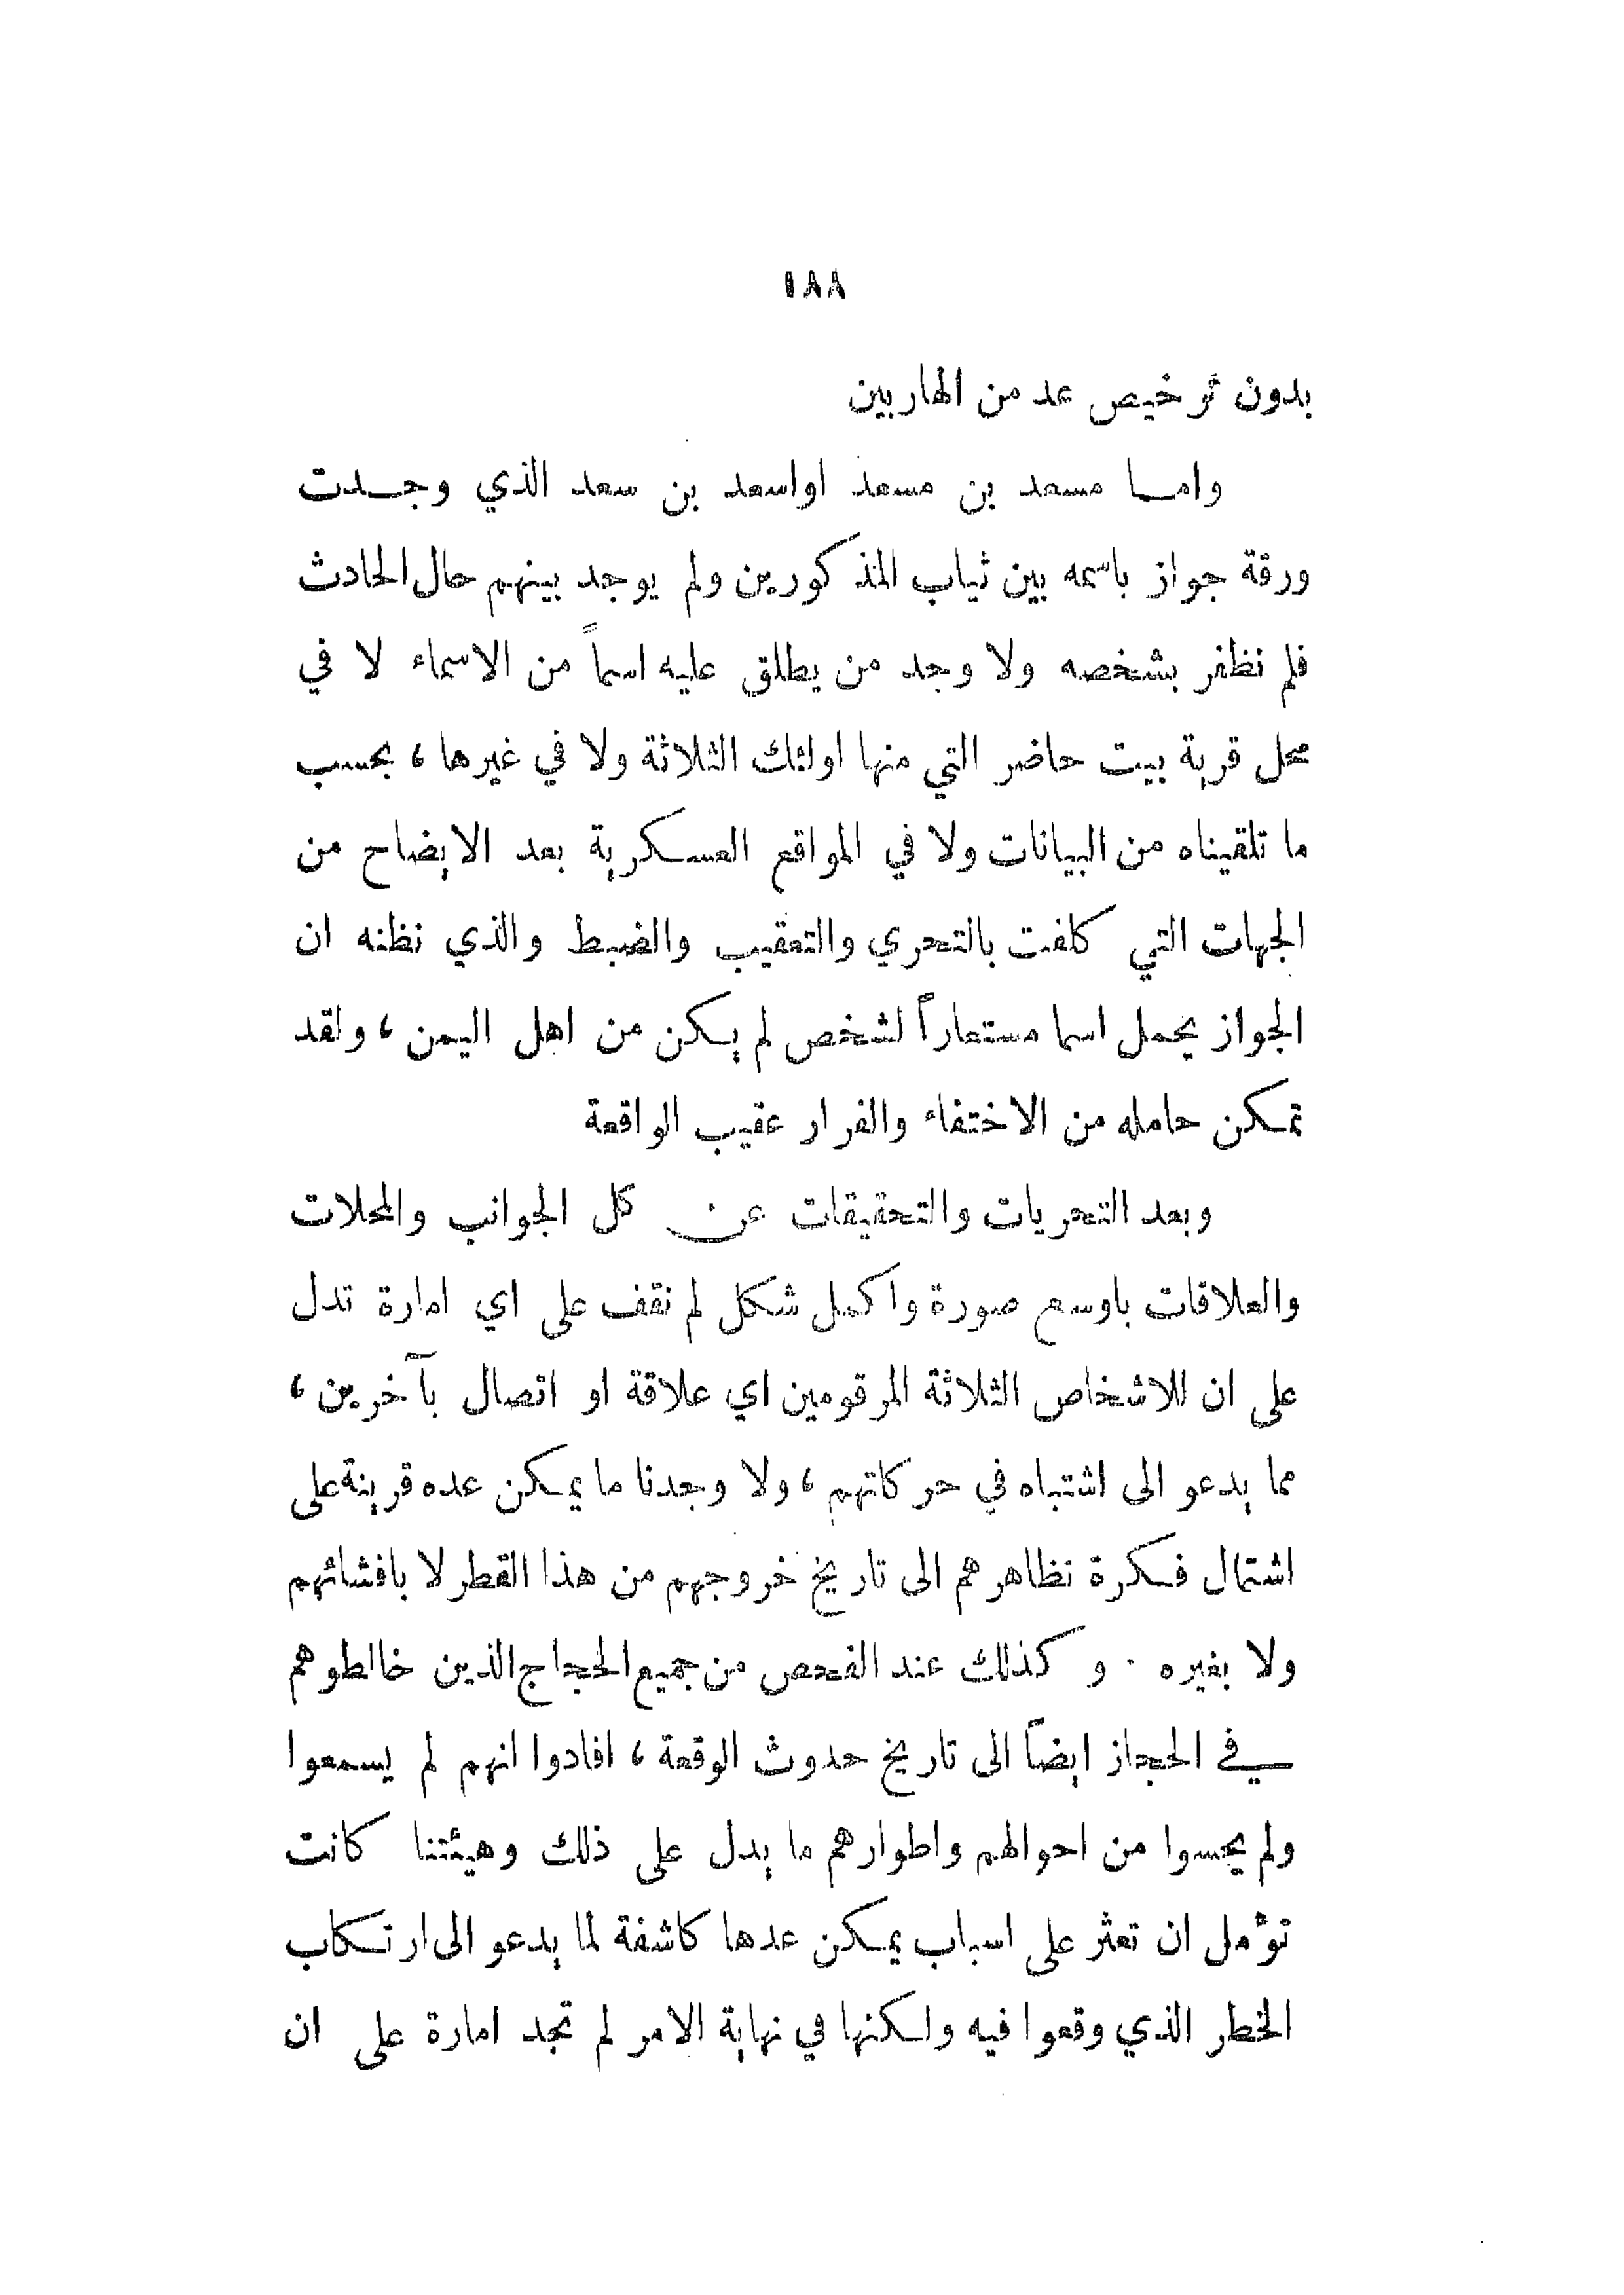 ١٨٨
بدون ترخيص عد من الهاربين
وامـا مسعد بن مسعد اواسعد بن سعد الذي وجـدت
ورقة جواز باسمه بين ثياب المذكورين ولم يوجد بينهم حال الحادث
فلم نظفر بشخصه ولا وجد من يطلق عليه اسماً من الاسماء لا في
محل قرية بيت حاضر التي منها اولئك الثلاثة ولا في غيرها ، بحسب
ما تلقيناه من البيانات ولا في المواقع العسكرية بعد الايضاح من
الجهات التي كلفت بالتحري والتعقيب والضبط والذي نظنه ان
الجواز يحمل اسما مستعاراً لشخص لم يكن من اهل اليمن ، ولقد
تمكن حامله من الاختفاء والفرار عقيب الواقعة
وبعد التحريات والتحقيقات عن كل الجوانب والمحلات
والعلاقات باوسع صورة واكمل شكل لم نقف على اي امارة تدل
على ان للاشخاص الثلاثة المرقومين اي علاقة او اتصال بآخرين ،
مما يدعو الى اشتباه في حركاتهم ، ولا وجدنا ما يمكن عده قرينة على
اشتمال فكرة تظاهرهم الى تاريخ خروجهم من هذا القطر لا بافشائهم
ولا بغيره . وكذلك عند الفحص من جميع الحجاج الذين خالطوهم
في الحجاز ايضاً الى تاريخ حدوث الوقعة ، افادوا انهم لم يسمعوا
ولم يحسوا من احوالهم واطوارهم ما يدل على ذلك وهيئتنا كانت
تؤمل ان تعثر على اسباب يمكن عدها كاشفة لما يدعو الى ارتكاب
الخطر الذي وقعوا فيه ولكنها في نهاية الامر لم تجد امارة على ان